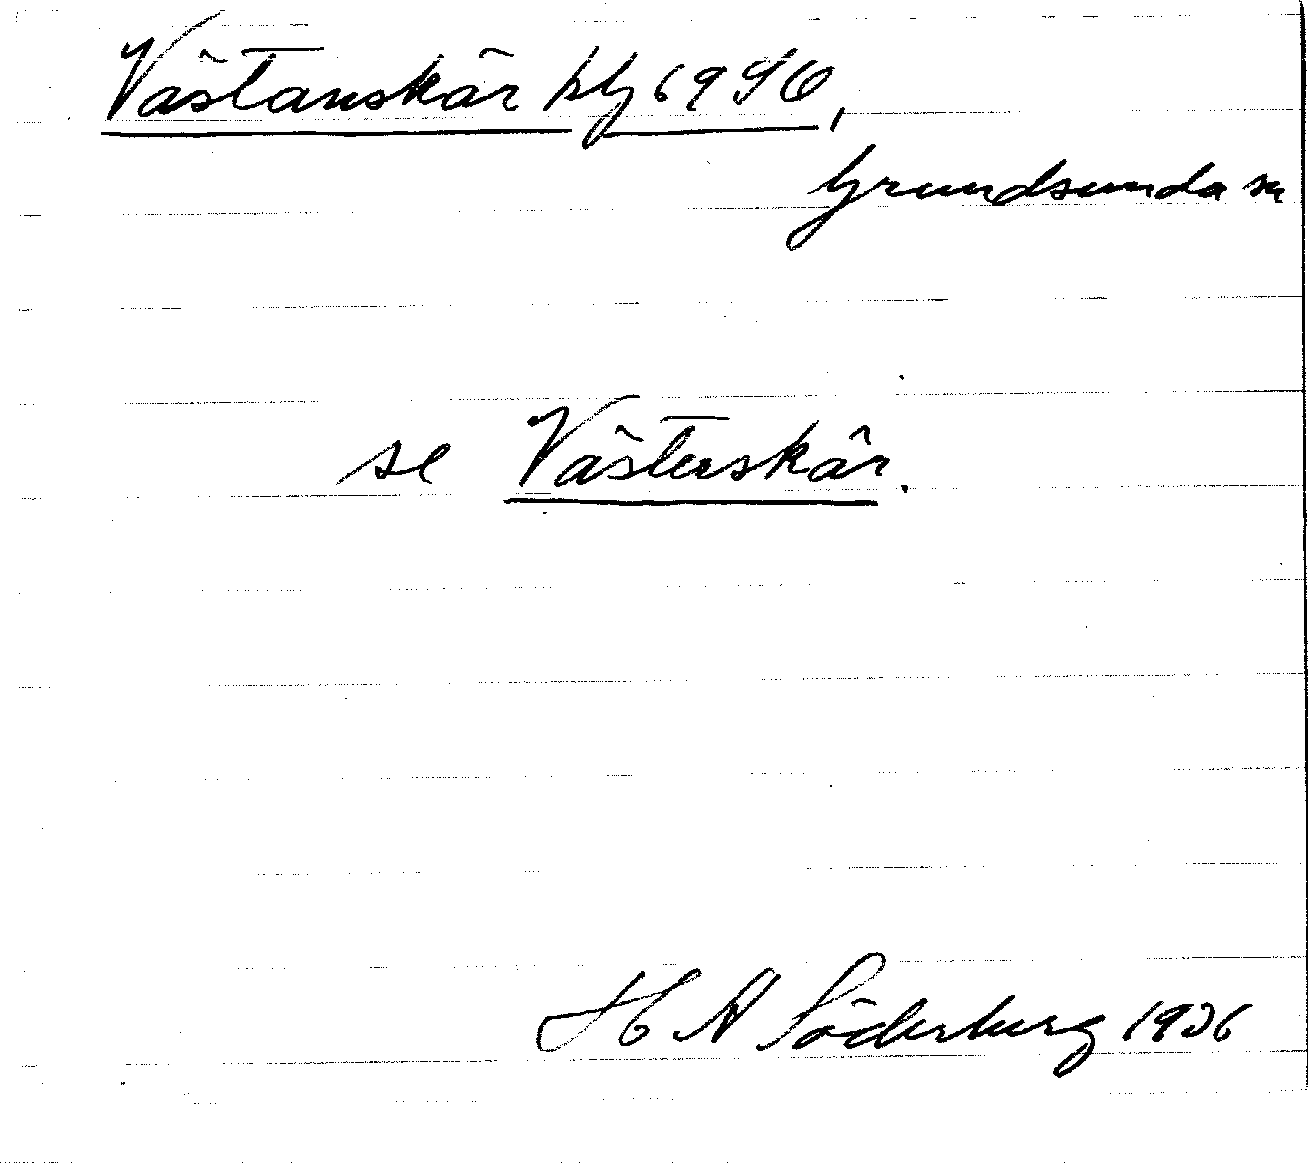 Västanskär
Grundsunda sn
se Västerskär.
H A Söderberg 1936